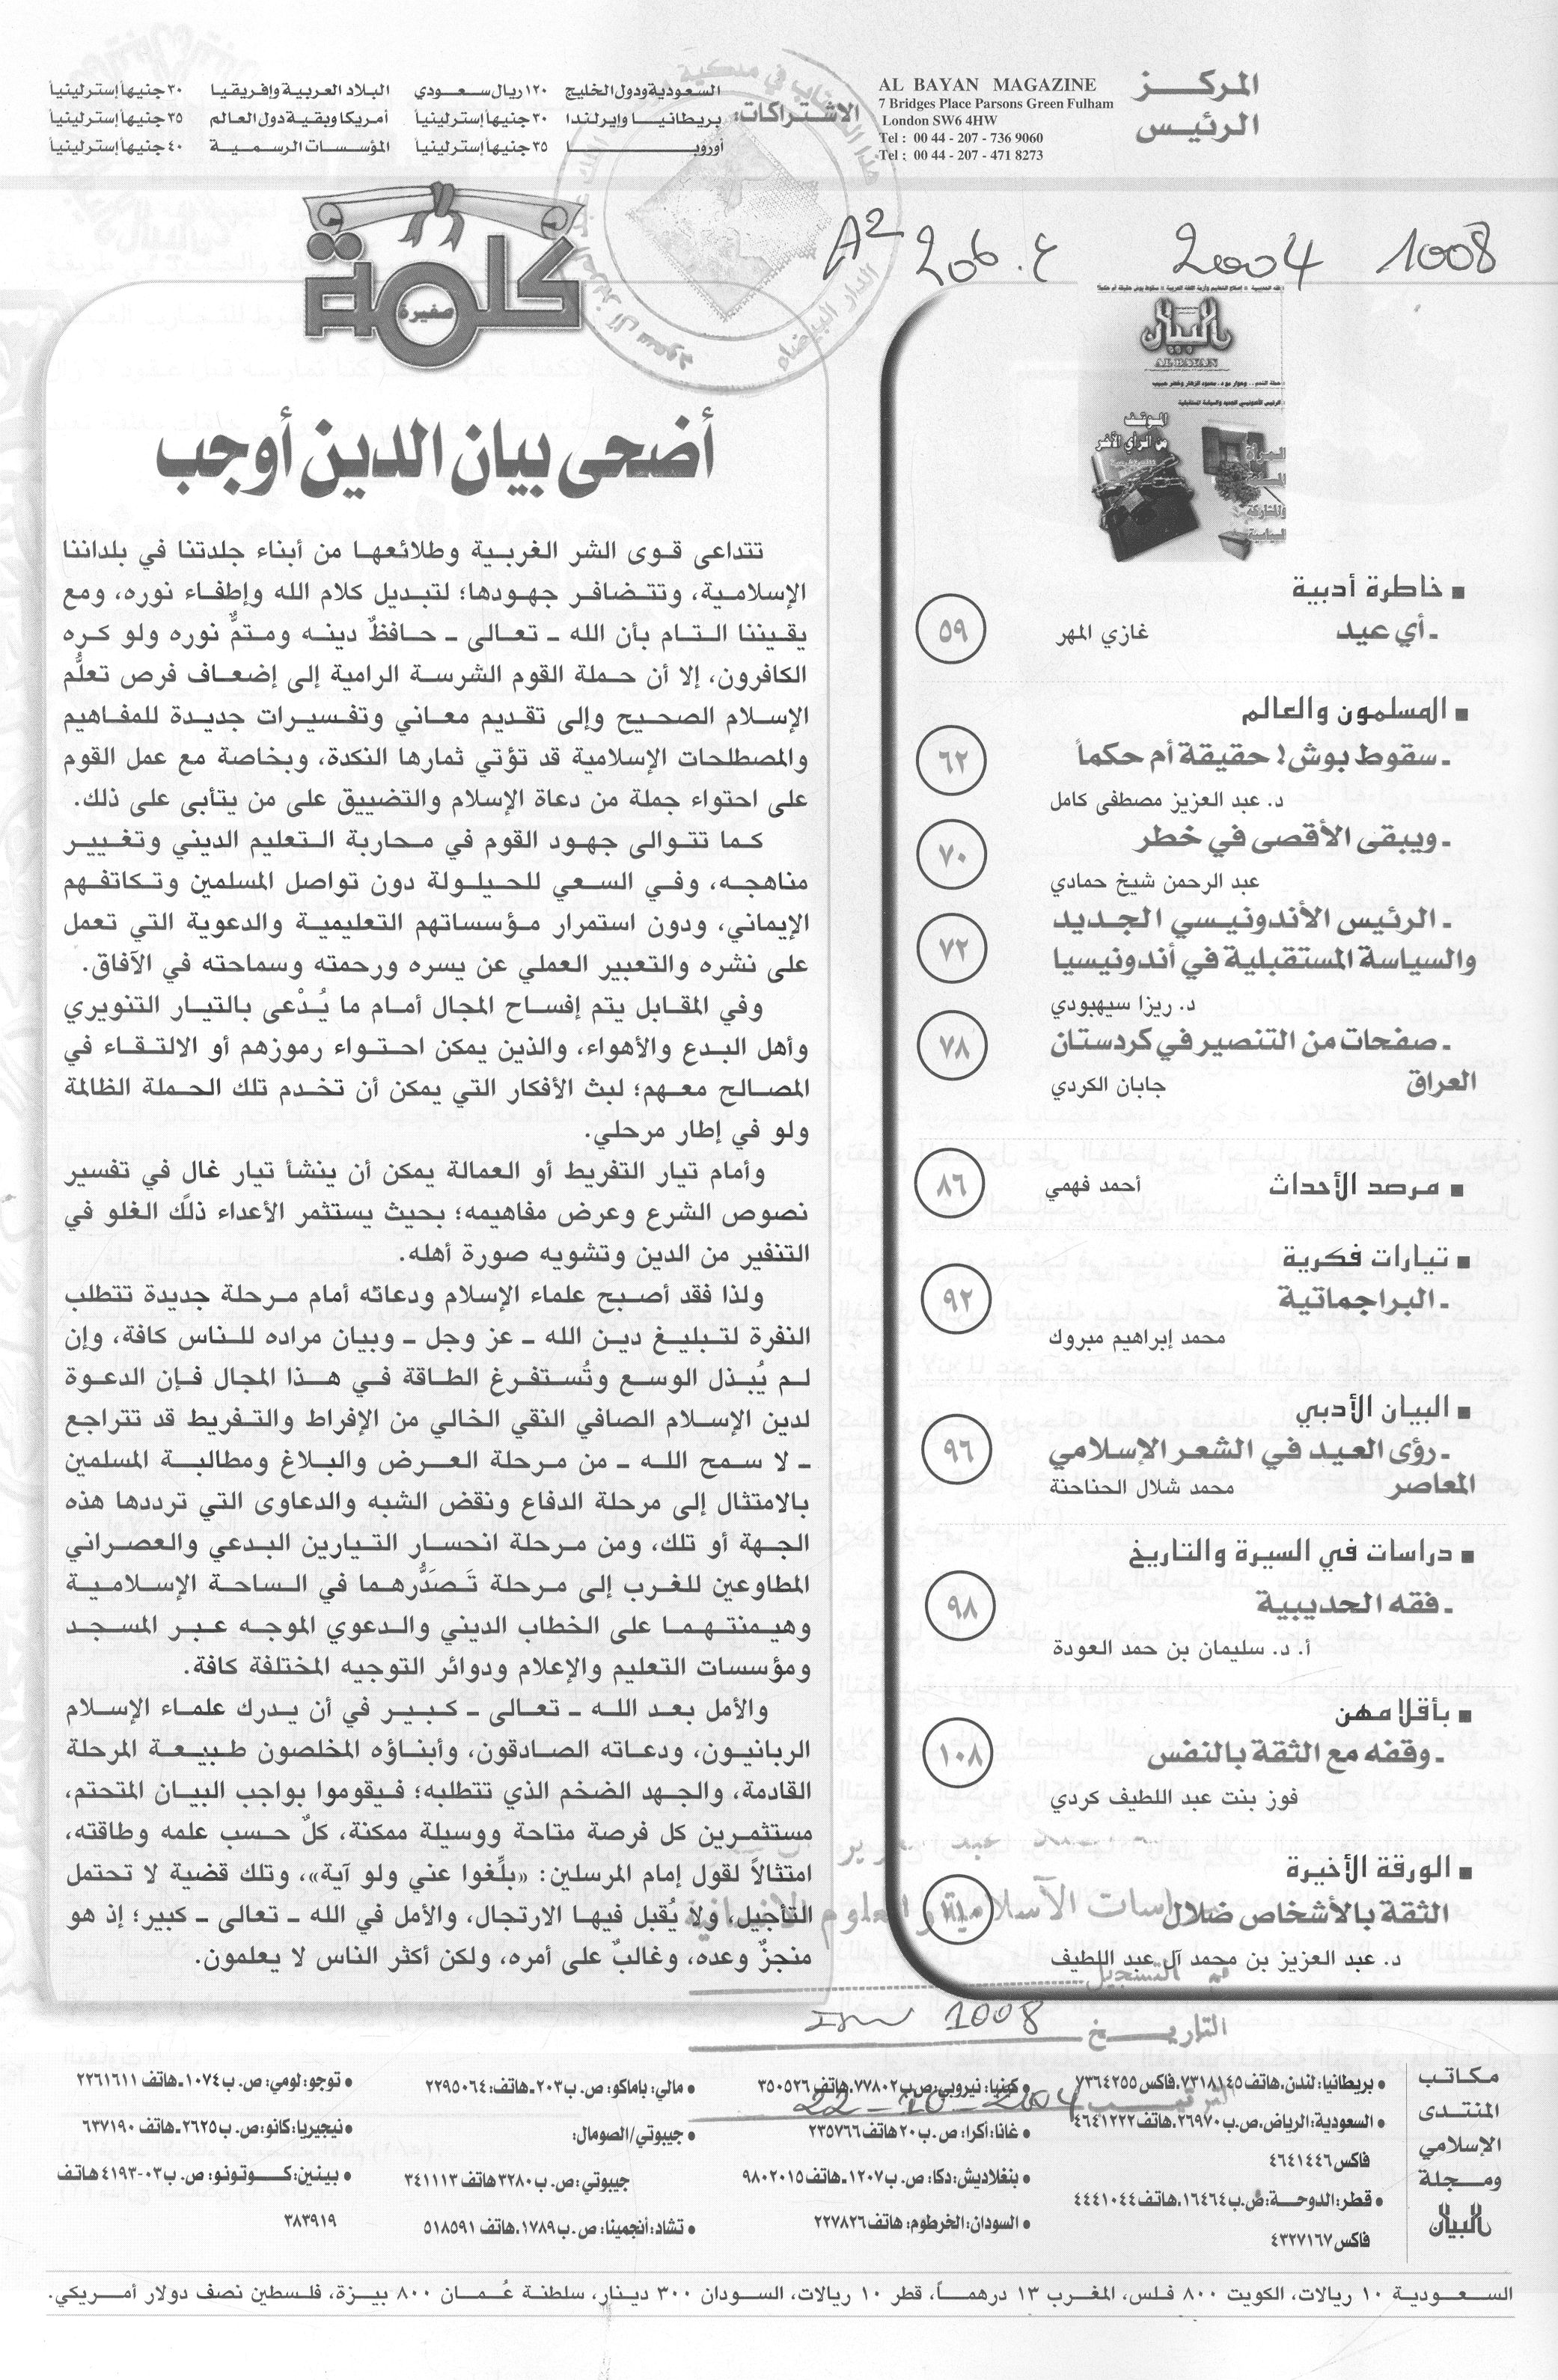 المركـــــز
الرئيس
AL BAYAN MAGAZINE
7 Bridges Place Parsons Green Fulham
London SW6 4HW
Tel : 00 44 - 207 - 736 9060
Tel ; 00 44 - 207 - 471 8273
الاشتراكات:
السعودية ودول الخليج ١٢٠ ريال سعودي
بريطانيا وإيرلندا ٣٠ جنيهاً إسترلينياً
أوروبا ٣٥ جنيهاً إسترلينياً
البلاد العربية وإفريقيا ٣٠ جنيهاً إسترلينياً
أمريكا وبقية دول العالم ٣٥ جنيهاً إسترلينياً
المؤسسات الرسمية ٤٠ جنيهاً إسترلينياً
A2 206.4 2004 1008
البيان
AL BAYAN
الموقف
من الرأي الآخر
▪ خاطرة أدبية
ـ أي عيد
غازي المهر ٥٩
▪ المسلمون والعالم
ـ سقوط بوش! حقيقة أم حكماً ٦٢
د. عبد العزيز مصطفى كامل
ـ ويبقى الأقصى في خطر ٧٠
عبد الرحمن شيخ حمادي
ـ الرئيس الأندونيسي الجديد
والسياسة المستقبلية في أندونيسيا ٧٢
د. ريزا سيهبودي
ـ صفحات من التنصير في كردستان ٧٨
العراق
جابان الكردي
▪ مرصد الأحداث أحمد فهمي ٨٦
▪ تيارات فكرية
ـ البراجماتية ٩٢
محمد إبراهيم مبروك
▪ البيان الأدبي
ـ رؤى العيد في الشعر الإسلامي ٩٦
المعاصر محمد شلال الحناحنة
▪ دراسات في السيرة والتاريخ
ـ فقه الحديبية ٩٨
أ. د. سليمان بن حمد العودة
▪ بأقلامهن
ـ وقفه مع الثقة بالنفس ١٠٨
فوز بنت عبد اللطيف كردي
▪ الورقة الأخيرة
الثقة بالأشخاص ضلال
د. عبد العزيز بن محمد آل عبد اللطيف
كلمة
صغيرة
أضحى بيان الدين أوجب
تتداعى قوى الشر الغربية وطلائعها من أبناء جلدتنا في بلداننا
الإسلامية، وتتضافر جهودها؛ لتبديل كلام الله وإطفاء نوره، ومع
يقيننا التام بأن الله ـ تعالى ـ حافظٌ دينه ومتمٌّ نوره ولو كره
الكافرون، إلا أن حملة القوم الشرسة الرامية إلى إضعاف فرص تعلُّم
الإسلام الصحيح وإلى تقديم معاني وتفسيرات جديدة للمفاهيم
والمصطلحات الإسلامية قد تؤتي ثمارها النكدة، وبخاصة مع عمل القوم
على احتواء جملة من دعاة الإسلام والتضييق على من يتأبى على ذلك.
كما تتوالى جهود القوم في محاربة التعليم الديني وتغيير
مناهجه، وفي السعي للحيلولة دون تواصل المسلمين وتكاتفهم
الإيماني، ودون استمرار مؤسساتهم التعليمية والدعوية التي تعمل
على نشره والتعبير العملي عن يسره ورحمته وسماحته في الآفاق.
وفي المقابل يتم إفساح المجال أمام ما يُدْعى بالتيار التنويري
وأهل البدع والأهواء، والذين يمكن احتواء رموزهم أو الالتقاء في
المصالح معهم؛ لبث الأفكار التي يمكن أن تخدم تلك الحملة الظالمة
ولو في إطار مرحلي.
وأمام تيار التفريط أو العمالة يمكن أن ينشأ تيار غال في تفسير
نصوص الشرع وعرض مفاهيمه؛ بحيث يستثمر الأعداء ذلك الغلو في
التنفير من الدين وتشويه صورة أهله.
ولذا فقد أصبح علماء الإسلام ودعاته أمام مرحلة جديدة تتطلب
النفرة لتبليغ دين الله ـ عز وجل ـ وبيان مراده للناس كافة، وإن
لم يُبذل الوسع وتُستفرغ الطاقة في هذا المجال فإن الدعوة
لدين الإسلام الصافي النقي الخالي من الإفراط والتفريط قد تتراجع
ـ لا سمح الله ـ من مرحلة العرض والبلاغ ومطالبة المسلمين
بالامتثال إلى مرحلة الدفاع ونقض الشبه والدعاوى التي ترددها هذه
الجهة أو تلك، ومن مرحلة انحسار التيارين البدعي والعصراني
المطاوعين للغرب إلى مرحلة تَصَدُّرهما في الساحة الإسلامية
وهيمنتهما على الخطاب الديني والدعوي الموجه عبر المسجد
ومؤسسات التعليم والإعلام ودوائر التوجيه المختلفة كافة.
والأمل بعد الله ـ تعالى ـ كبير في أن يدرك علماء الإسلام
الربانيون، ودعاته الصادقون، وأبناؤه المخلصون طبيعة المرحلة
القادمة، والجهد الضخم الذي تتطلبه؛ فيقوموا بواجب البيان المتحتم،
مستثمرين كل فرصة متاحة ووسيلة ممكنة، كلٌ حسب علمه وطاقته،
امتثالاً لقول إمام المرسلين: «بلِّغوا عني ولو آية»، وتلك قضية لا تحتمل
التأجيل، ولا يُقبل فيها الارتجال، والأمل في الله ـ تعالى ـ كبير؛ إذ هو
منجزٌ وعده، وغالبٌ على أمره، ولكن أكثر الناس لا يعلمون.
التسجيل
التاريخ 1008
22-10-2004
مكاتب
المنتدى
الإسلامي
ومجلة
البيان
• بريطانيا: لندن. هاتف ٧٣١٨١٤٥. فاكس ٧٣٦٤٢٥٥
• السعودية: الرياض. ص.ب ٢٦٩٧٠. هاتف ٤٦٤١٢٢٢
فاكس ٤٦٤١٤٤٦
• قطر: الدوحة: ص.ب ١٦٤٦٤. هاتف ٤٤٤١٠٤٤
فاكس ٤٣٢٧١٦٧
• كينيا: نيروبي: ص ب ٧٧٨٠٢. هاتف ٣٥٠٥٢٦
• غانا: أكرا: ص. ب ٢٠ هاتف ٢٣٥٧٦٦
• بنغلاديش: دكا: ص. ب ١٢٠٧ـ هاتف ٩٨٠٢٠١٥
• السودان: الخرطوم: هاتف ٢٢٧٨٢٦
• مالي: باماكو: ص. ب ٢٠٣ـ هاتف: ٢٢٩٥٠٦٤
• جيبوتي/الصومال:
جيبوتي: ص. ب ٣٢٨٠ هاتف ٣٤١١١٣
• تشاد: أنجمينا: ص. ب ١٧٨٩. هاتف ٥١٨٥٩١
• توجو: لومي: ص. ب ١٠٧٤ـ هاتف ٢٢٦١٦١١
• نيجيريا: كانو: ص. ب ٢٦٢٥ـ هاتف ٦٣٧١٩٠
• بينين: كوتونو: ص. ب ٠٣-٤١٩٣ هاتف
٣٨٣٩١٩
السعودية ١٠ ريالات، الكويت ٨٠٠ فلس، المغرب ١٣ درهماً، قطر ١٠ ريالات، السودان ٣٠٠ دينار، سلطنة عُمان ٨٠٠ بيزة، فلسطين نصف دولار أمريكي.